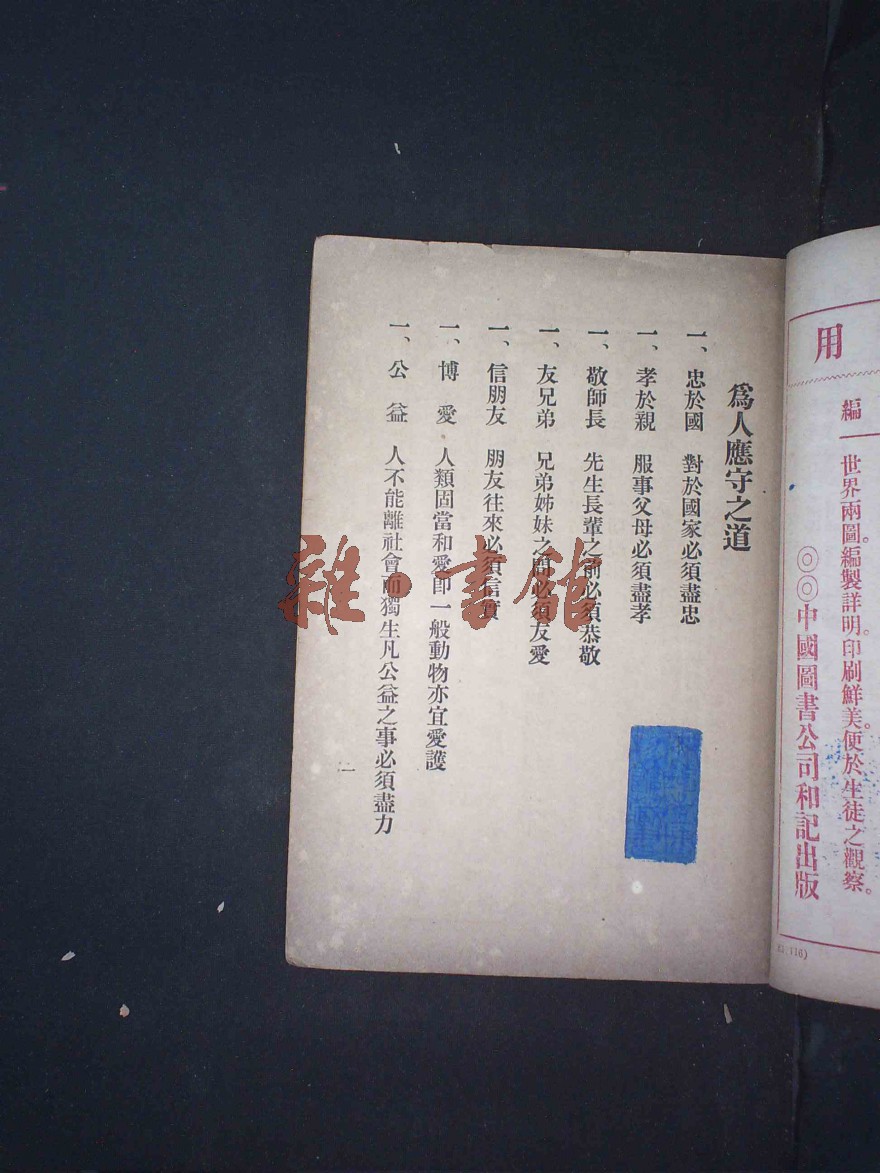 用
編
世界兩圖。編製詳明。印刷鮮美。便於生徒之觀察。
◎◎中國圖書公司和記出版
爲人應守之道
一、忠於國 對於國家必須盡忠
一、孝於親 服事父母必須盡孝
一、敬師長 先生長輩之前必須恭敬
一、友兄弟 兄弟姊妹之間必須友愛
一、信朋友 朋友往來必須信實
一、博愛 人類固當和愛卽一般動物亦宜愛護
一、公益 人不能離社會而獨生凡公益之事必須盡力
一
雜·書館